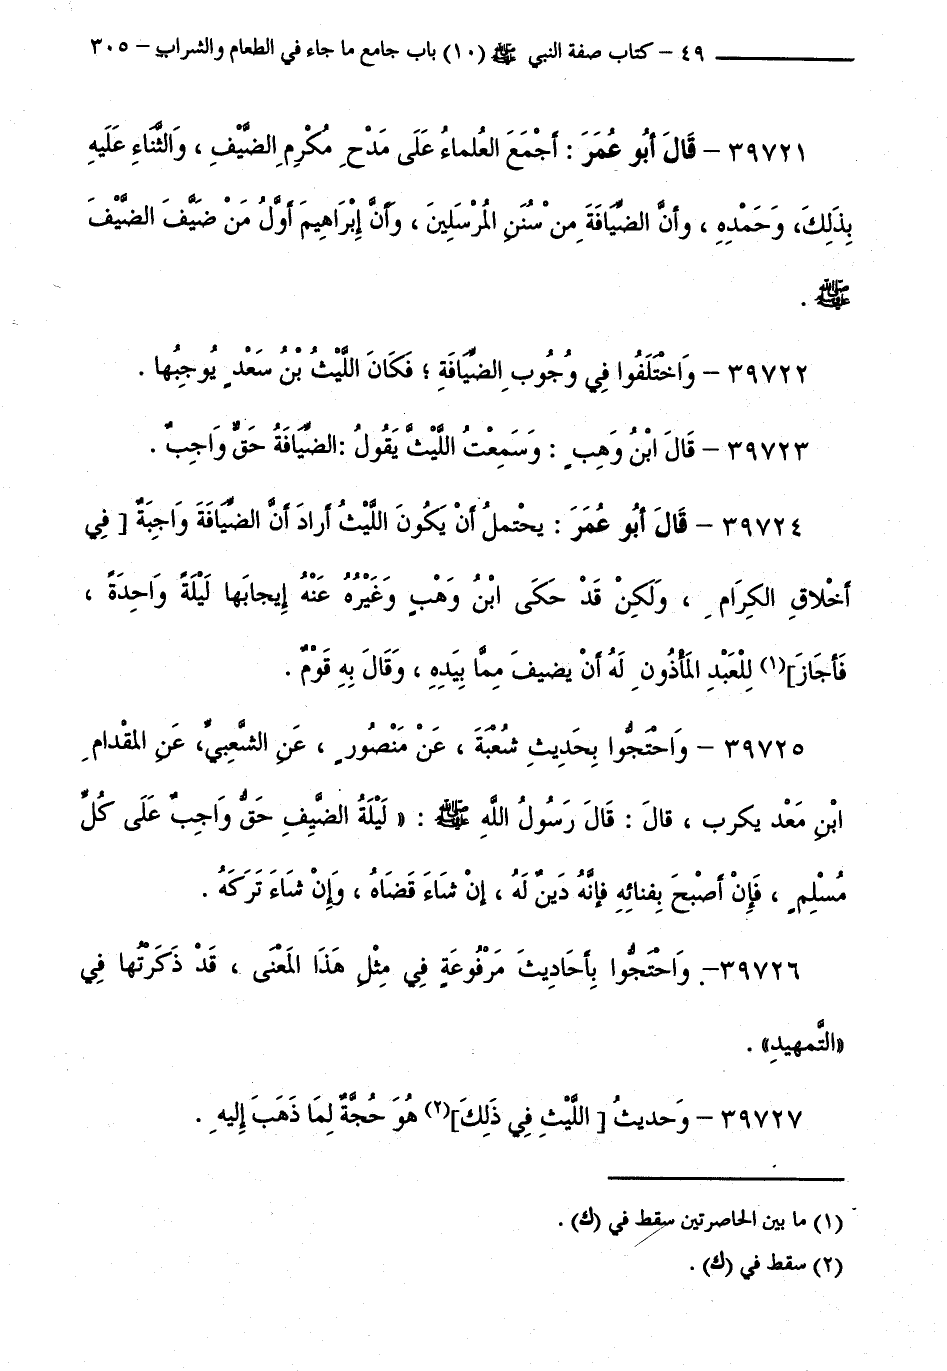 ٤٩ – كتاب صفة النبي ﷺ (١٠) باب جامع ما جاء في الطعام والشراب – ٣٠٥
٣٩٧٢١ – قَالَ أبُو عُمَرَ : أجْمَعَ العُلماءُ عَلَى مَدْحِ مُكْرِمِ الضَّيْفِ ، وَالثَّنَاءِ عَلَيهِ
بِذَلِكَ، وَحَمْدِهِ ، وأنَّ الضِّيَافَةَ مِن سُنَنِ المُرْسَلِينَ ، وَأنَّ إِبْرَاهِيمَ أوَّلُ مَنْ ضَيَّفَ الضَّيْفَ
ﷺ .
٣٩٧٢٢ – وَاخْتَلَفُوا فِي وُجُوبِ الضِّيَافَةِ ؛ فَكَانَ اللَّيْثُ بْنُ سَعْدٍ يُوجِبُها .
٣٩٧٢٣ – قَالَ ابْنُ وَهِبٍ : وَسَمِعْتُ اللَّيْثَ يَقُولُ :الضِّيَافَةُ حَقٌّ وَاجِبٌ .
٣٩٧٢٤ – قَالَ أبُو عُمَرَ : يحْتملُ أنْ يَكُونَ اللَّيْثُ أرادَ أنَّ الضِّيَافَةَ وَاجِبَةٌ [ فِي
أخْلاقِ الكِرَامِ ، وَلَكِنْ قَدْ حَكَى ابْنُ وَهْبٍ وَغَيْرُهُ عَنْهُ إِيجابَها لَيْلَةً وَاحِدَةً ،
فَأجَازَ](١) لِلْعَبْدِ المَأْذُونِ لَهُ أنْ يضيفَ مِمَّا بِيَدِهِ ، وَقَالَ بِهِ قَوْمٌ .
٣٩٧٢٥ – وَاحْتَجُّوا بِحَدِيثِ شُعْبَةَ ، عَنْ مَنْصُورٍ ، عَنِ الشَّعبِيِّ، عَنِ المقْدامِ
ابْنِ مَعْد يكرب ، قالَ : قَالَ رَسُولُ اللَّهِ ﷺ : « لَيْلَةُ الضَّيفِ حَقٌّ وَاجِبٌ عَلَى كُلِّ
مُسْلِمٍ ، فَإِنْ أصْبحَ بِفنائِهِ فإنَّهُ دَينٌ لَهُ ، إنْ شاءَ قَضَاهُ ، وَإِنْ شاءَ تَرَكَهُ .
٣٩٧٢٦–. وَاحْتَجُّوا بِأحَادِيثَ مَرْفُوعَةٍ فِي مِثْلِ هَذَا المَعْنَى ، قَدْ ذَكَرْتُها فِي
«التَّمهيدِ» .
٣٩٧٢٧ – وَحديثُ [ اللَّيْثِ فِي ذَلِكَ](٢) هُوَ حُجَّةٌ لِمَا ذَهَبَ إِليهِ .
(١) ما بين الحاصرتين سقط في (ك) .
(٢) سقط في (ك) .